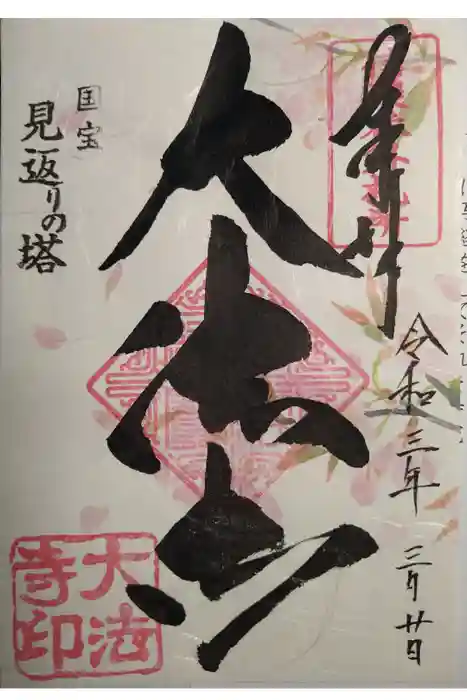 奉拝
令和三年 三月廿日
大法寺
国宝
見返りの塔
大法寺印